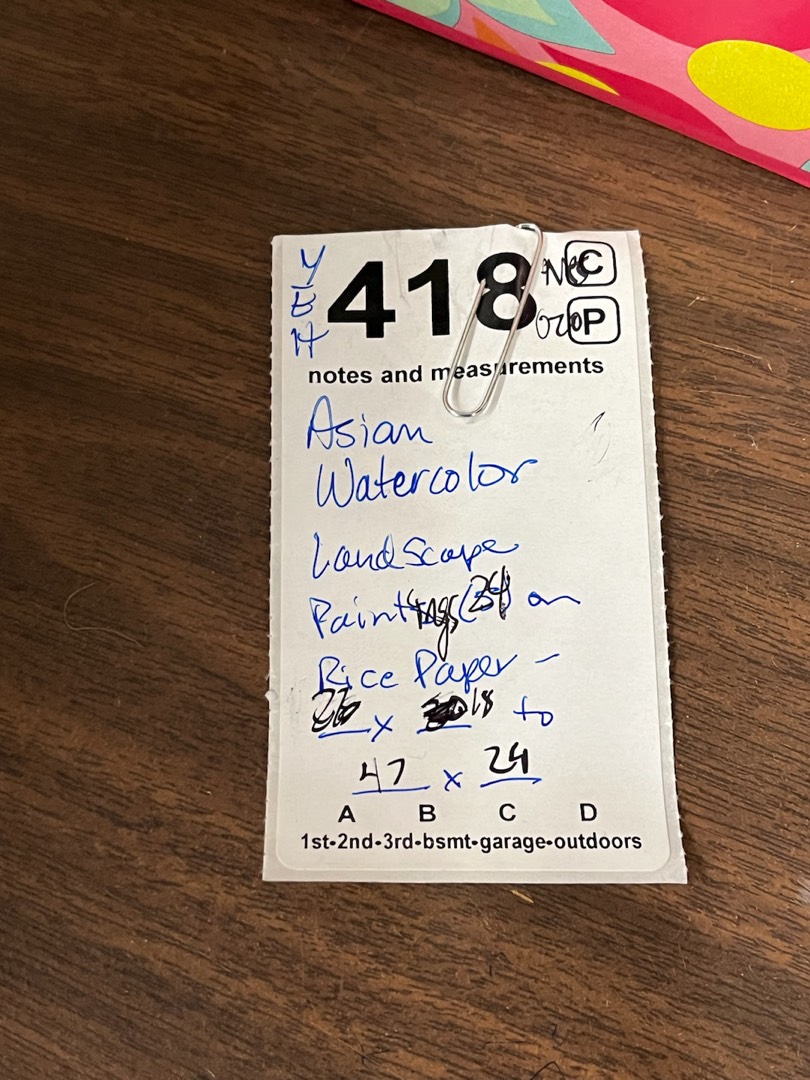 YEH 418 C
P
notes and measurements
Asian
Watercolor
Landscape
Paintings (24) on
Rice Paper -
x 18 to
47 x 24
A B C D
1st-2nd-3rd-bsmt-garage-outdoors